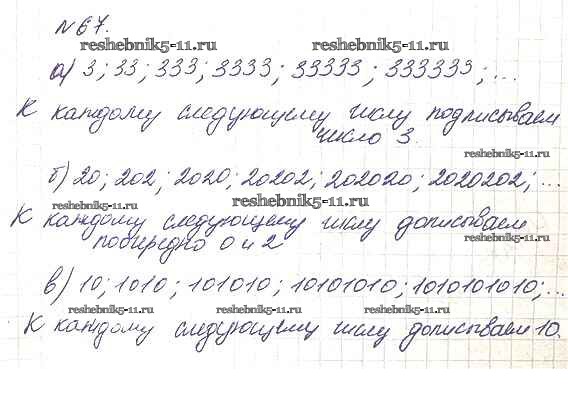 №67.
reshebnik5-11.ru reshebnik5-11.ru
а) 3; 33; 333; 3333; 33333; 333333; ...
К каждому следующему числу подписываем
число 3.
reshebnik5-11.ru
б) 20; 202, 2020; 20202; 202020; 2020202; ...
reshebnik5-11.ru reshebnik5-11.ru
К каждому следующему числу дописываем
reshebnik5-11.ru
поочередно 0 и 2
в) 10; 1010; 101010; 10101010; 1010101010; ...
reshebnik5-11.ru reshebnik5-11.ru reshebnik5-11.ru
К каждому следующему числу дописываем 10.